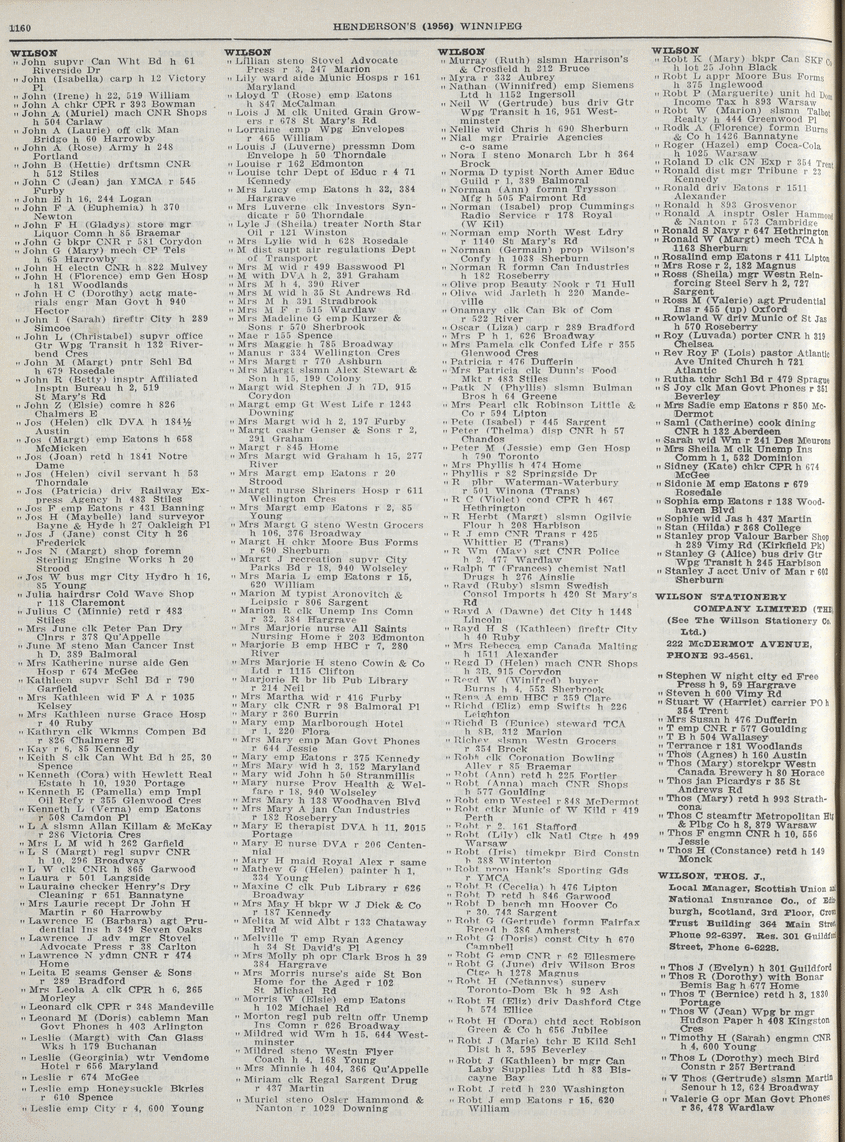 1160
HENDERSON'S (1956) WINNIPEG
WILSON
" John supvr Can Wht Bd h 61
Riverside Dr
" John (Isabella) carp h 12 Victory
Pl
" John (Irene) h 22, 519 William
" John A chkr CPR r 393 Bowman
" John A (Muriel) mach CNR Shops
h 504 Carlaw
" John A (Laurie) off clk Man
Bridge h 60 Harrowby
" John A (Rose) Army h 248
Portland
" John B (Hettie) drftsmn CNR
h 512 Stiles
" John C (Jean) jan YMCA r 545
Furby
" John E h 16, 244 Logan
" John F A (Euphemia) h 370
Newton
" John F H (Gladys) store mgr
Liquor Comn h 85 Braemar
" John G bkpr CNR r 581 Corydon
" John G (Mary) mech CP Tels
h 65 Harrowby
" John H electn CNR h 822 Mulvey
" John H (Florence) emp Gen Hosp
h 181 Woodlands
" John H C (Dorothy) actg mate-
rials engr Man Govt h 940
Hector
" John I (Sarah) fireftr City h 289
Simcoe
" John L (Christabel) supvr office
Gtr Wpg Transit h 132 River-
bend Cres
" John M (Margt) pntr Schl Bd
h 679 Rosedale
" John R (Betty) insptr Affiliated
Insptn Bureau h 2, 519
St Mary's Rd
" John Z (Elsie) comre h 826
Chalmers E
" Jos (Helen) clk DVA h 184½
Austin
" Jos (Margt) emp Eatons h 658
McMicken
" Jos (Joan) retd h 1841 Notre
Dame
" Jos (Helen) civil servant h 53
Thorndale
" Jos (Patricia) driv Railway Ex-
press Agency h 483 Stiles
" Jos F emp Eatons r 431 Banning
" Jos H (Maybelle) land surveyor
Bayne & Hyde h 27 Oakleigh Pl
" Jos J (Jane) const City h 26
Frederick
" Jos N (Margt) shop foremn
Sterling Engine Works h 20
Strood
" Jos W bus mgr City Hydro h 16,
85 Young
" Julia hairdrsr Cold Wave Shop
r 118 Claremont
" Julius C (Minnie) retd r 483
Stiles
" Mrs June clk Peter Pan Dry
Clnrs r 378 Qu'Appelle
" June M steno Man Cancer Inst
h D, 389 Balmoral
" Mrs Katherine nurse aide Gen
Hosp r 674 McGee
" Kathleen supvr Schl Bd r 790
Garfield
" Mrs Kathleen wid F A r 1035
Kelsey
" Mrs Kathleen nurse Grace Hosp
r 40 Ruby
" Kathryn clk Wkmns Compen Bd
r 826 Chalmers E
" Kay r 6, 85 Kennedy
" Keith S clk Can Wht Bd h 25, 30
Spence
" Kenneth (Cora) with Hewlett Real
Estate h 10, 1930 Portage
" Kenneth E (Pamella) emp Impl
Oil Refy r 355 Glenwood Cres
" Kenneth L (Verna) emp Eatons
r 508 Camdon Pl
" L A slsmn Allan Killam & McKay
r 286 Victoria Cres
" Mrs L M wid h 262 Garfield
" L S (Margt) regl supvr CNR
h 10, 296 Broadway
" L W clk CNR h 865 Garwood
" Laura r 501 Langside
" Lauraine checker Henry's Dry
Cleaning r 651 Bannatyne
" Mrs Laurie recpt Dr John H
Martin r 60 Harrowby
" Lawrence E (Barbara) agt Pru-
dential Ins h 349 Seven Oaks
" Lawrence J adv mgr Stovel
Advocate Press r 38 Carlton
" Lawrence N ydmn CNR r 474
Home
" Leita E seams Genser & Sons
r 289 Bradford
" Mrs Leola A clk CPR h 6, 265
Morley
" Leonard clk CPR r 348 Mandeville
" Leonard M (Doris) cablemn Man
Govt Phones h 403 Arlington
" Leslie (Margt) with Can Glass
Wks h 179 Buchanan
" Leslie (Georginia) wtr Vendome
Hotel r 656 Maryland
" Leslie r 674 McGee
" Leslie emp Honeysuckle Bkries
r 610 Spence
" Leslie emp City r 4, 600 Young
WILSON
" Lillian steno Stovel Advocate
Press r 3, 247 Marion
" Lily ward aide Munic Hosps r 161
Maryland
" Lloyd T (Rose) emp Eatons
h 847 McCalman
" Lois J M clk United Grain Grow-
ers r 678 St Mary's Rd
" Lorraine emp Wpg Envelopes
r 465 William
" Louis J (Luverne) pressmn Dom
Envelope h 50 Thorndale
" Louise r 162 Edmonton
" Louise tchr Dept of Educ r 4 71
Kennedy
" Mrs Lucy emp Eatons h 32, 384
Hargrave
" Mrs Luverne clk Investors Syn-
dicate r 50 Thorndale
" Lyle J (Sheila) treater North Star
Oil r 121 Winston
" Mrs Lylie wid h 628 Rosedale
" M dist supt air regulations Dept
of Transport
" Mrs M wid r 499 Basswood Pl
" M with DVA h 2, 391 Graham
" Mrs M h 4, 390 River
" Mrs M wid h 35 St Andrews Rd
" Mrs M h 391 Stradbrook
" Mrs M F r 515 Wardlaw
" Mrs Madeline G emp Kurzer &
Sons r 570 Sherbrook
" Mae r 155 Spence
" Mrs Maggie h 785 Broadway
" Manus r 334 Wellington Cres
" Mrs Margt r 770 Ashburn
" Mrs Margt slsmn Alex Stewart &
Son h 15, 199 Colony
" Margt wid Stephen J h 7D, 915
Corydon
" Margt emp Gt West Life r 1243
Downing
" Mrs Margt wid h 2, 197 Furby
" Margt cashr Genser & Sons r 2,
291 Graham
" Margt r 845 Home
" Mrs Margt wid Graham h 15, 277
River
" Mrs Margt emp Eatons r 20
Strood
" Margt nurse Shriners Hosp r 611
Wellington Cres
" Mrs Margt emp Eatons r 2, 85
Young
" Mrs Margt G steno Westn Grocers
h 106, 376 Broadway
" Margt H chkr Moore Bus Forms
r 690 Sherburn
" Margt J recreation supvr City
Parks Bd r 18, 940 Wolseley
" Mrs Maria L emp Eatons r 15,
620 William
" Marion M typist Aronovitch &
Leipsic r 806 Sargent
" Marion R clk Unemp Ins Comn
r 32, 384 Hargrave
" Mrs Marjorie nurse All Saints
Nursing Home r 203 Edmonton
" Marjorie B emp HBC r 7, 280
River
" Mrs Marjorie H steno Cowin & Co
Ltd r 1115 Clifton
" Marjorie R br lib Pub Library
r 214 Neil
" Mrs Martha wid r 416 Furby
" Mary clk CNR r 98 Balmoral Pl
" Mary r 260 Burrin
" Mary emp Marlborough Hotel
r 1, 220 Flora
" Mrs Mary emp Man Govt Phones
r 644 Jessie
" Mary emp Eatons r 375 Kennedy
" Mrs Mary wid h 3, 152 Maryland
" Mary wid John h 50 Stranmillis
" Mary nurse Prov Health & Wel-
fare r 18, 940 Wolseley
" Mrs Mary h 138 Woodhaven Blvd
" Mrs Mary A jan Can Industries
r 182 Roseberry
" Mary E therapist DVA h 11, 2015
Portage
" Mary E nurse DVA r 206 Centen-
nial
" Mary H maid Royal Alex r same
" Mathew G (Helen) painter h 1,
334 Young
" Maxine C clk Pub Library r 626
Broadway
" Mrs May H bkpr W J Dick & Co
r 187 Kennedy
" Melita M wid Albt r 133 Chataway
Blvd
" Melville T emp Ryan Agency
h 34 St David's Pl
" Mrs Molly ph opr Clark Bros h 39
384 Hargrave
" Mrs Morris nurse's aide St Bon
Home for the Aged r 102
St Michael Rd
" Morris W (Elsie) emp Eatons
h 102 Michael Rd
" Morton regl pub reltn offr Unemp
Ins Comn r 626 Broadway
" Mildred wid Wm h 15, 644 West-
minster
" Mildred steno Westn Flyer
Coach h 4, 168 Young
" Mrs Minnie h 404, 366 Qu'Appelle
" Miriam clk Regal Sargent Drug
r 437 Martin
" Muriel steno Osler Hammond &
Nanton r 1029 Downing
WILSON
" Murray (Ruth) slsmn Harrison's
& Crosfield h 212 Bruce
" Myra r 332 Aubrey
" Nathan (Winnifred) emp Siemens
Ltd h 1152 Ingersoll
" Neil W (Gertrude) bus driv Gtr
Wpg Transit h 16, 951 West-
minster
" Nellie wid Chris h 690 Sherburn
" Nial mgr Prairie Agencies
c-o same
" Nora I steno Monarch Lbr h 364
Brock
" Norma D typist North Amer Educ
Guild r 1, 389 Balmoral
" Norman (Ann) formn Trysson
Mfg h 505 Fairmont Rd
" Norman (Isabel) prop Cummings
Radio Service r 178 Royal
(W Kil)
" Norman emp North West Ldry
r 1140 St Mary's Rd
" Norman (Germain) prop Wilson's
Confy h 1038 Sherburn
" Norman R formn Can Industries
h 182 Roseberry
" Olive prop Beauty Nook r 71 Hull
" Olive wid Jarleth h 220 Mande-
ville
" Onamary clk Can Bk of Com
r 522 River
" Oscar (Liza) carp r 289 Bradford
" Mrs P h 1, 626 Broadway
" Mrs Pamela clk Confed Life r 355
Glenwood Cres
" Patricia r 476 Dufferin
" Mrs Patricia clk Dunn's Food
Mkt r 483 Stiles
" Patk N (Phyllis) slsmn Bulman
Bros h 64 Greene
" Mrs Pearl clk Robinson Little &
Co r 594 Lipton
" Pete (Isabel) r 445 Sargent
" Peter (Thelma) disp CNR h 57
Chandos
" Peter M (Jessie) emp Gen Hosp
h 790 Toronto
" Mrs Phyllis h 474 Home
" Phyllis r 82 Springside Dr
" R plbr Waterman-Waterbury
r 501 Winona (Trans)
" R C (Violet) cond CPR h 467
Hethrington
" R Herbt (Margt) slsmn Ogilvie
Flour h 208 Harbison
" R J emp CNR Trans r 425
Whittier E (Trans)
" R Wm (May) sgt CNR Police
h 2, 477 Wardlaw
" Ralph T (Frances) chemist Natl
Drugs h 276 Ainslie
" Rayd (Ruby) slsmn Swedish
Consol Imports h 420 St Mary's
Rd
" Rayd A (Dawne) det City h 1448
Lincoln
" Rayd H S (Kathleen) fireftr City
h 40 Ruby
" Mrs Rebecca emp Canada Malting
h 1511 Alexander
" Regd D (Helen) mach CNR Shops
h 3B, 915 Corydon
" Regd W (Winifred) buyer
Burns h 4, 553 Sherbrook
" Rena A emp HBC r 359 Clare
" Richd (Eliz) emp Swifts r 226
Leighton
" Richd B (Eunice) steward TCA
h 8B, 312 Marion
" Richey slsmn Westn Grocers
r 354 Brock
" Robt clk Coronation Bowling
Alley r 85 Braemar
" Robt (Ann) retd h 225 Fortier
" Robt (Anna) mach CNR Shops
h 577 Goulding
" Robt emp Westeel r 848 McDermot
" Robt ctkr Munic of W Kild r 419
Perth
" Robt r 2, 161 Stafford
" Robt (Lily) clk Natl Ctge h 499
Warsaw
" Robt (Iris) timekpr Bird Constn
h 388 Winterton
" Robt prop Hank's Sporting Gds
r YMCA
" Robt B (Cecelia) h 476 Lipton
" Robt D retd h 846 Garwood
" Robt D bench mn Hoover Co
r 30, 743 Sargent
" Robt G (Gertrude) formn Fairfax
Bread h 386 Amherst
" Robt G (Doris) const City h 670
Campbell
" Robt G emp CNR r 62 Ellesmere
" Robt G (June) driv Wilson Bros
Ctge h 1278 Magnus
" Robt H superv
Toronto-Dom Bk h 92 Ash
" Robt H (Eliz) driv Dashford Ctge
h 574 Ellice
" Robt H (Dora) chtd acct Robison
Green & Co h 656 Jubilee
" Robt J (Marie) tchr E Kild Schl
Dist h 3, 595 Beverley
" Robt J (Kathleen) br mgr Can
Laby Supplies Ltd h 83 Bis-
cayne Bay
" Robt J retd h 230 Washington
" Robt J emp Eatons r 15, 620
William
WILSON
" Robt K (Mary) bkpr Can SKF Co
h lot 25 John Black
" Robt L appr Moore Bus Forms
h 375 Inglewood
" Robt P (Marguerite) unit hd Dom
Income Tax h 893 Warsaw
" Robt W (Marion) slsmn Talbot
Realty h 444 Greenwood Pl
" Rodk A (Florence) formn Burns
& Co h 1426 Bannatyne
" Roger (Hazel) emp Coca-Cola
h 1025 Warsaw
" Roland D clk CN Exp r 354 Trent
" Ronald dist mgr Tribune r 23
Kennedy
" Ronald driv Eatons r 1511
Alexander
" Ronald h 893 Grosvenor
" Ronald A insptr Osler Hammond
& Nanton r 573 Cambridge
" Ronald S Navy r 647 Hethrington
" Ronald W (Margt) mech TCA h
1163 Sherburn
" Rosalind emp Eatons r 411 Lipton
" Mrs Rose r 2, 182 Magnus
" Ross (Sheila) mgr Westn Rein-
forcing Steel Serv h 2, 727
Sargent
" Ross M (Valerie) agt Prudential
Ins r 455 (up) Oxford
" Rowland W driv Munic of St Jas
h 570 Roseberry
" Roy (Luvada) porter CNR h 319
Chelsea
" Rev Roy F (Lois) pastor Atlantic
Ave United Church h 721
Atlantic
" Rutha tchr Schl Bd r 479 Sprague
" S Joy clk Man Govt Phones r 351
Beverley
" Mrs Sadie emp Eatons r 850 Mc-
Dermot
" Saml (Catherine) cook dining
CNR h 132 Aberdeen
" Sarah wid Wm r 241 Des Meurons
" Mrs Sheila M clk Unemp Ins
Comm h 1, 532 Dominion
" Sidney (Kate) chkr CPR h 674
McGee
" Sidonie M emp Eatons r 679
Rosedale
" Sophia emp Eatons r 138 Wood-
haven Blvd
" Sophie wid Jas h 437 Martin
" Stan (Hilda) r 368 College
" Stanley prop Valour Barber Shop
h 289 Vimy Rd (Kirkfield Pk)
" Stanley G (Alice) bus driv Gtr
Wpg Transit h 245 Harbison
" Stanley J acct Univ of Man r 602
Sherburn
WILSON STATIONERY
COMPANY LIMITED (THE)
(See The Willson Stationery Co.
Ltd.)
222 McDERMOT AVENUE,
PHONE 93-4561.
" Stephen W night city ed Free
Press h 9, 59 Hargrave
" Steven h 600 Vimy Rd
" Stuart W (Harriet) carrier PO h
354 Trent
" Mrs Susan h 476 Dufferin
" T emp CNR r 577 Goulding
" T B h 504 Wallasey
" Terrance r 181 Woodlands
" Thos (Agnes) h 160 Austin
" Thos (Mary) storekpr Westn
Canada Brewery h 80 Horace
" Thos jan Picardys r 35 St
Andrews Rd
" Thos (Mary) retd h 993 Strath-
cona
" Thos C steamftr Metropolitan Htg
& Plbg Co h 8, 879 Warsaw
" Thos F engmn CNR h 10, 556
Jessie
" Thos H (Constance) retd h 149
Monck
WILSON, THOS. J.,
Local Manager, Scottish Union and
National Insurance Co., of Edin-
burgh, Scotland, 3rd Floor, Crown
Trust Building 364 Main Street
Phone 92-6397. Res. 301 Guildford
Street, Phone 6-6228.
" Thos J (Evelyn) h 301 Guildford
" Thos R (Dorothy) with Bonar
Bemis Bag h 677 Home
" Thos T (Bernice) retd h 3, 1830
Portage
" Thos W (Jean) Wpg br mgr
Hudson Paper h 408 Kingston
Cres
" Timothy H (Sarah) engmn CNR
h 4, 600 Young
" Thos L (Dorothy) mech Bird
Constn r 257 Bertrand
" V Thos (Gertrude) slsmn Martin
Senour h 12, 624 Broadway
" Valerie G opr Man Govt Phones
r 36, 478 Wardlaw